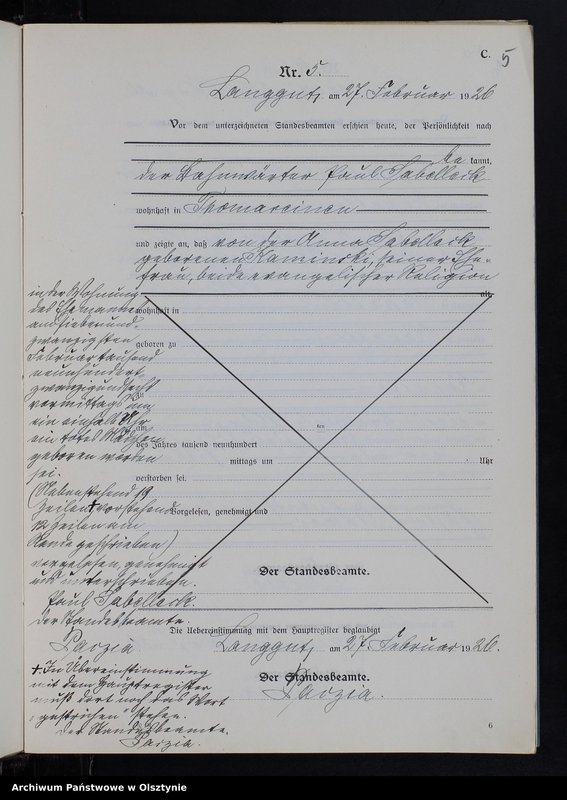 C.
5
Nr. 5.
Langgut, am 27. Februar 1926
Vor dem unterzeichneten Standesbeamten erschien heute, der Persönlichkeit nach
be kannt,
der Bahnwärter Paul Sabolleck
wohnhaft in Thomareinen
und zeigte an, daß von der Anna Sabolleck
geborenen Kaminski, seiner Ehe-
frau, beide evangelischer Religion
alt,
wohnhaft in
geboren zu
zu
am ten
des Jahres tausend neunhundert
mittags um Uhr
verstorben sei.
Vorgelesen, genehmigt und
Der Standesbeamte.
in der Wohnung
des Ehemannes
am siebenund-
zwanzigsten
Februar tausend
neunhundert
zwanzigundsechs
vormittags um
ein einhalb Uhr
ein totes Mädchen
geboren worden
sei.
(Nebenstehend 19
Zeilen + vorstehend
12 Zeilen am
Rande geschrieben)
vorgelesen, genehmigt
und unterschrieben.
Paul Sabolleck.
Der Standesbeamte.
Parzia
Die Uebereinstimmung mit dem Hauptregister beglaubigt
Langgut, am 27. Februar 1926.
Der Standesbeamte.
Parzia.
+ In Übereinstimmung
mit dem Hauptregister
muß dort noch das Wort
"gestrichen" stehen.
Der Standesbeamte.
Parzia.
6
Archiwum Państwowe w Olsztynie